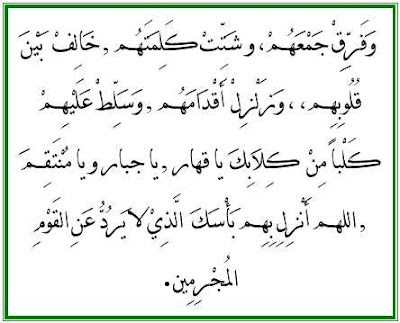 وَفَرِّقْ جَمْعَهُمْ, وشَتِّتْ كَلِمَتَهُم , خَالِف بَيْنَ
قُلُوبِهِم ,, وَزَلْزِلْ أَقْدَامَهُم , وَسَلِّطْ عَلَيْهِمْ
كَلْباً مِنْ كِلَابِكَ يا قهار , يا جبار ويا مُنْتَقِمَ
, اللهم أَنْزِلِبِهِم بَأْسَكَ الَّذِيْ لَا يَرُدُّ عَنِ القَوْمِ
المُجْرِمِين .